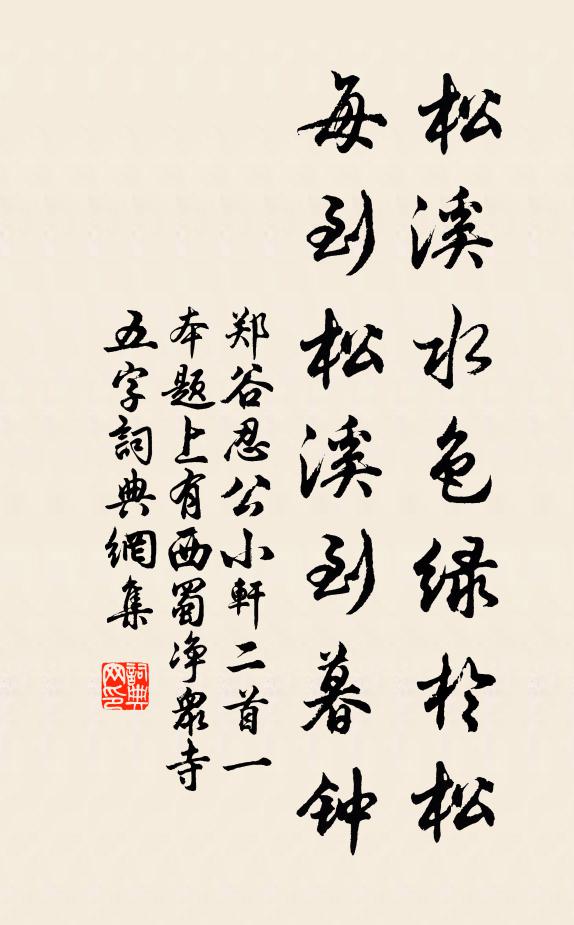 松溪水色绿於松
每到松溪到暮钟
郑谷忍公小軒二首一
本题上有西蜀净眾寺
五字詞典網集
詞典网印